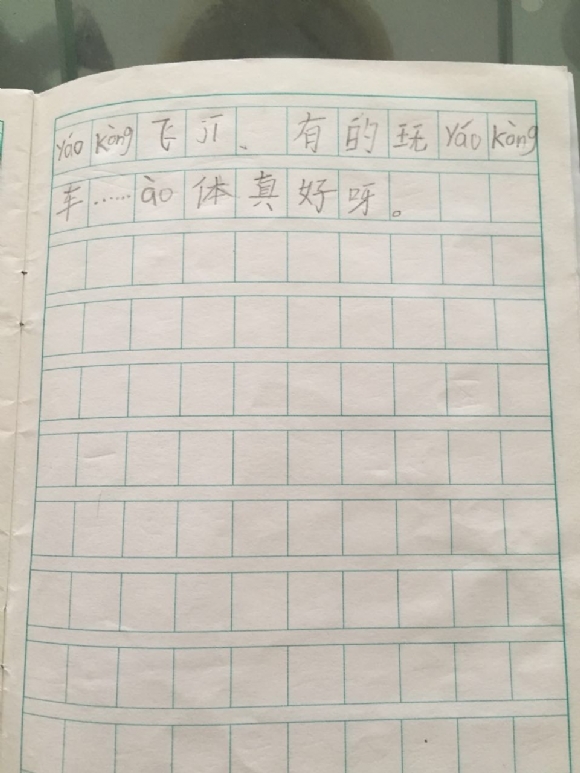 yáo kòng 飞 JI、有的玩 yáo kòng
车……ào 体真好呀。